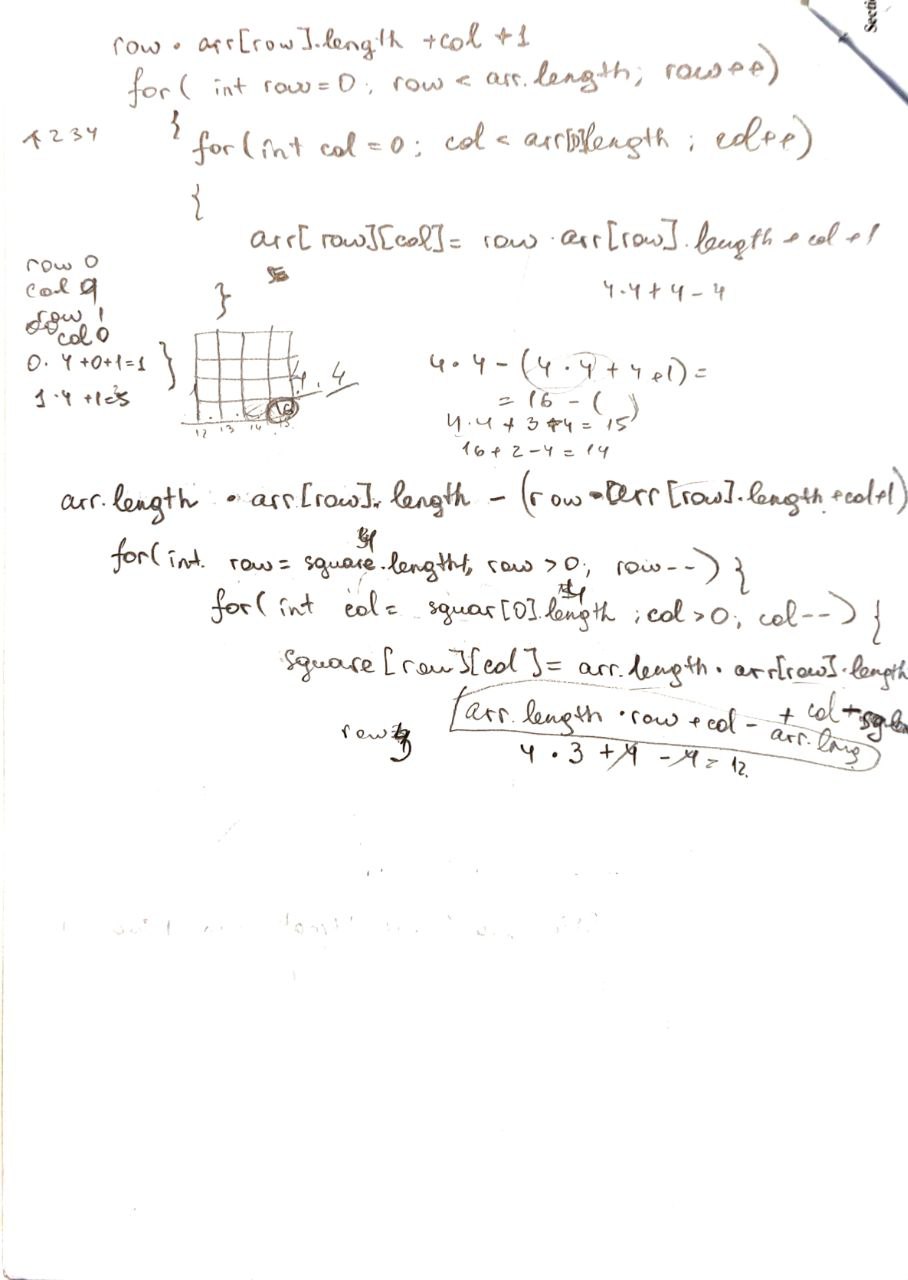 Secti
row • arr[row].length +col +1
for( int row=0; row < arr.length; row++)
{
1 2 3 4
for(int col=0; col < arr[0]length; col++)
{
arr[row][col]= row · arr[row].length + col +1
row 0
col 9
}
4·4+4-4
row 1
col 0
0·4+0+1=1 }
1·4+1=5
4.4
16
12 13 14 15
4•4-(4·4+4+1)=
=16-( )
4·4+3-4=15
16+2-4=14
arr.length • arr[row].length - (row•arr[row].length+col+1)
for(int row= square.length, row>0; row--){
for(int col= squar[0].length ; col>0; col--){
square[row][col]= arr.length• arr[row].length
+ col -
arr.length •row+col- arr.leng
row 3
4•3+4-4=12.